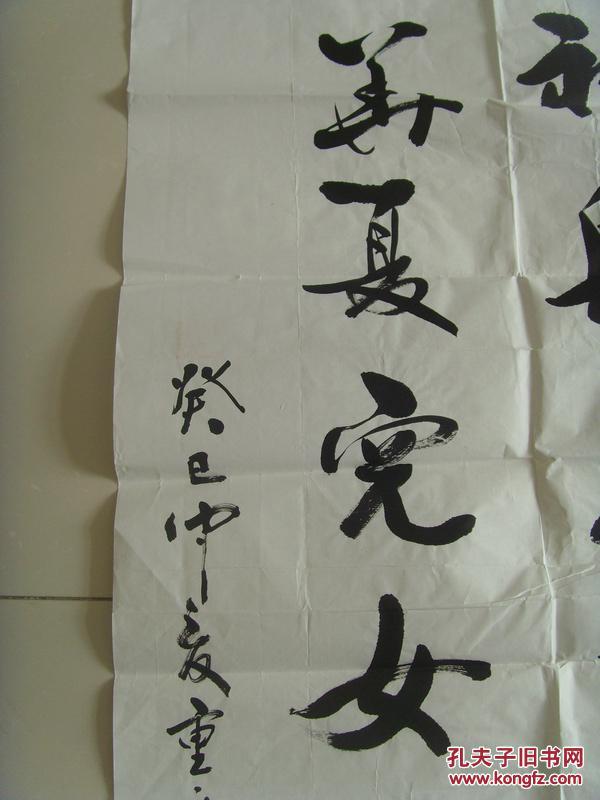 華夏兒女
癸巳仲夏重
孔夫子旧书网
www.kongfz.com